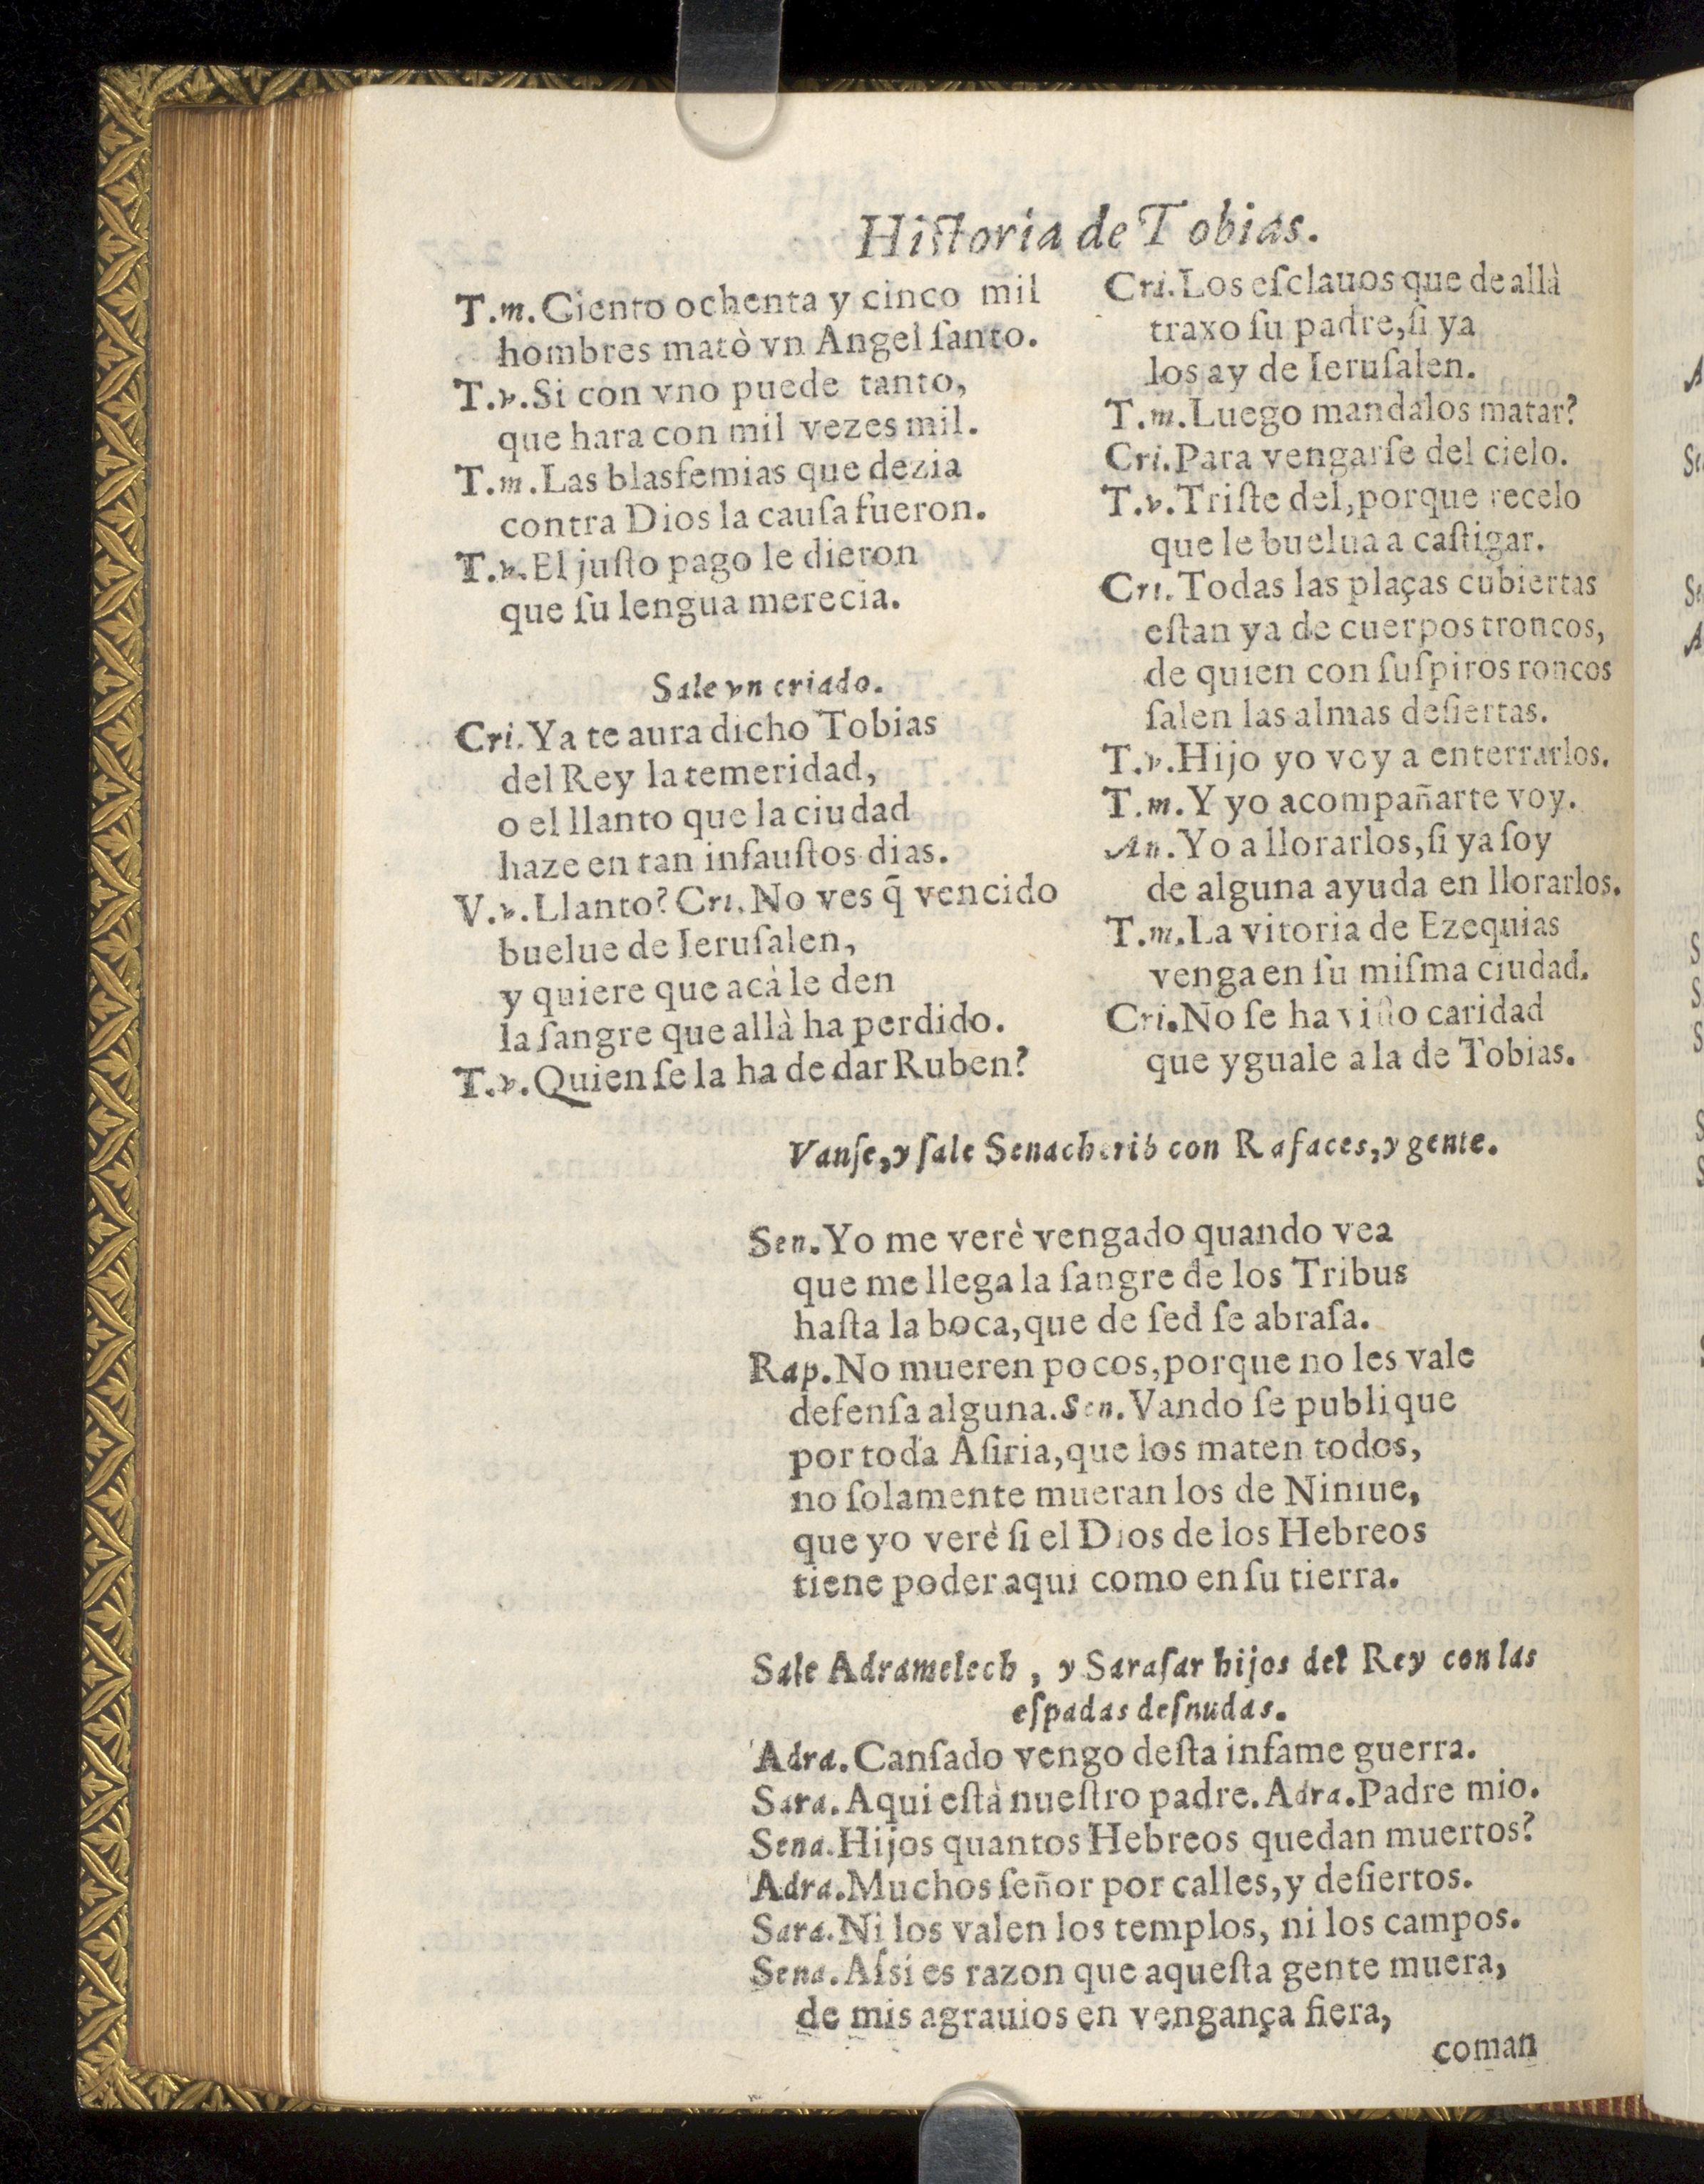 Hiſtoria de Tobias.
T.m. Ciento ochenta y cinco mil
hombres matò vn Angel ſanto.
T.v. Si con vno puede tanto,
que hara con mil vezes mil.
T.m. Las blasfemias que dezia
contra Dios la cauſa fueron.
T.v. El juſto pago le dieron
que ſu lengua merecia.
Sale vn criado.
Cri. Ya te aura dicho Tobias
del Rey la temeridad,
o el llanto que la ciudad
haze en tan infauſtos dias.
V.v. Llanto? Cri. No ves q̃ vencido
buelue de Ieruſalen,
y quiere que acà le den
la ſangre que allà ha perdido.
T.v. Quien ſe la ha de dar Ruben?
Cri. Los eſclauos que de allà
traxo ſu padre, ſi ya
los ay de Ieruſalen.
T.m. Luego mandalos matar?
Cri. Para vengarſe del cielo.
T.v. Triſte del, porque recelo
que le buelua a caſtigar.
Cri. Todas las plaças cubiertas
eſtan ya de cuerpos troncos,
de quien con ſuſpiros roncos
ſalen las almas deſiertas.
T.v. Hijo yo voy a enterrarlos.
T.m. Y yo acompañarte voy.
An. Yo a llorarlos, ſi ya ſoy
de alguna ayuda en llorarlos.
T.m. La vitoria de Ezequias
venga en ſu miſma ciudad.
Cri. No ſe ha viſto caridad
que yguale a la de Tobias.
Vanſe, y ſale Senacherib con Rafaces, y gente.
Sen. Yo me verè vengado quando vea
que me llega la ſangre de los Tribus
haſta la boca, que de ſed ſe abraſa.
Rap. No mueren pocos, porque no les vale
defenſa alguna. Sen. Vando ſe publique
por toda Aſiria, que los maten todos,
no ſolamente mueran los de Niniue,
que yo verè ſi el Dios de los Hebreos
tiene poder aqui como en ſu tierra.
Sale Adramelech, y Saraſar hijos del Rey con las
eſpadas deſnudas.
Adra. Canſado vengo deſta infame guerra.
Sara. Aqui eſtà nueſtro padre. Adra. Padre mio.
Sena. Hijos quantos Hebreos quedan muertos?
Adra. Muchos ſeñor por calles, y deſiertos.
Sara. Ni los valen los templos, ni los campos.
Sena. Aſsi es razon que aqueſta gente muera,
de mis agrauios en vengança fiera,
coman